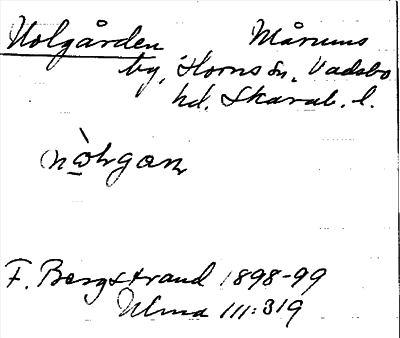 Holgården Mårums
by, Horns sn, Vadsbo
hd. Skarab. l.
F. Bergstrand 1898-99
Ulma 111:319